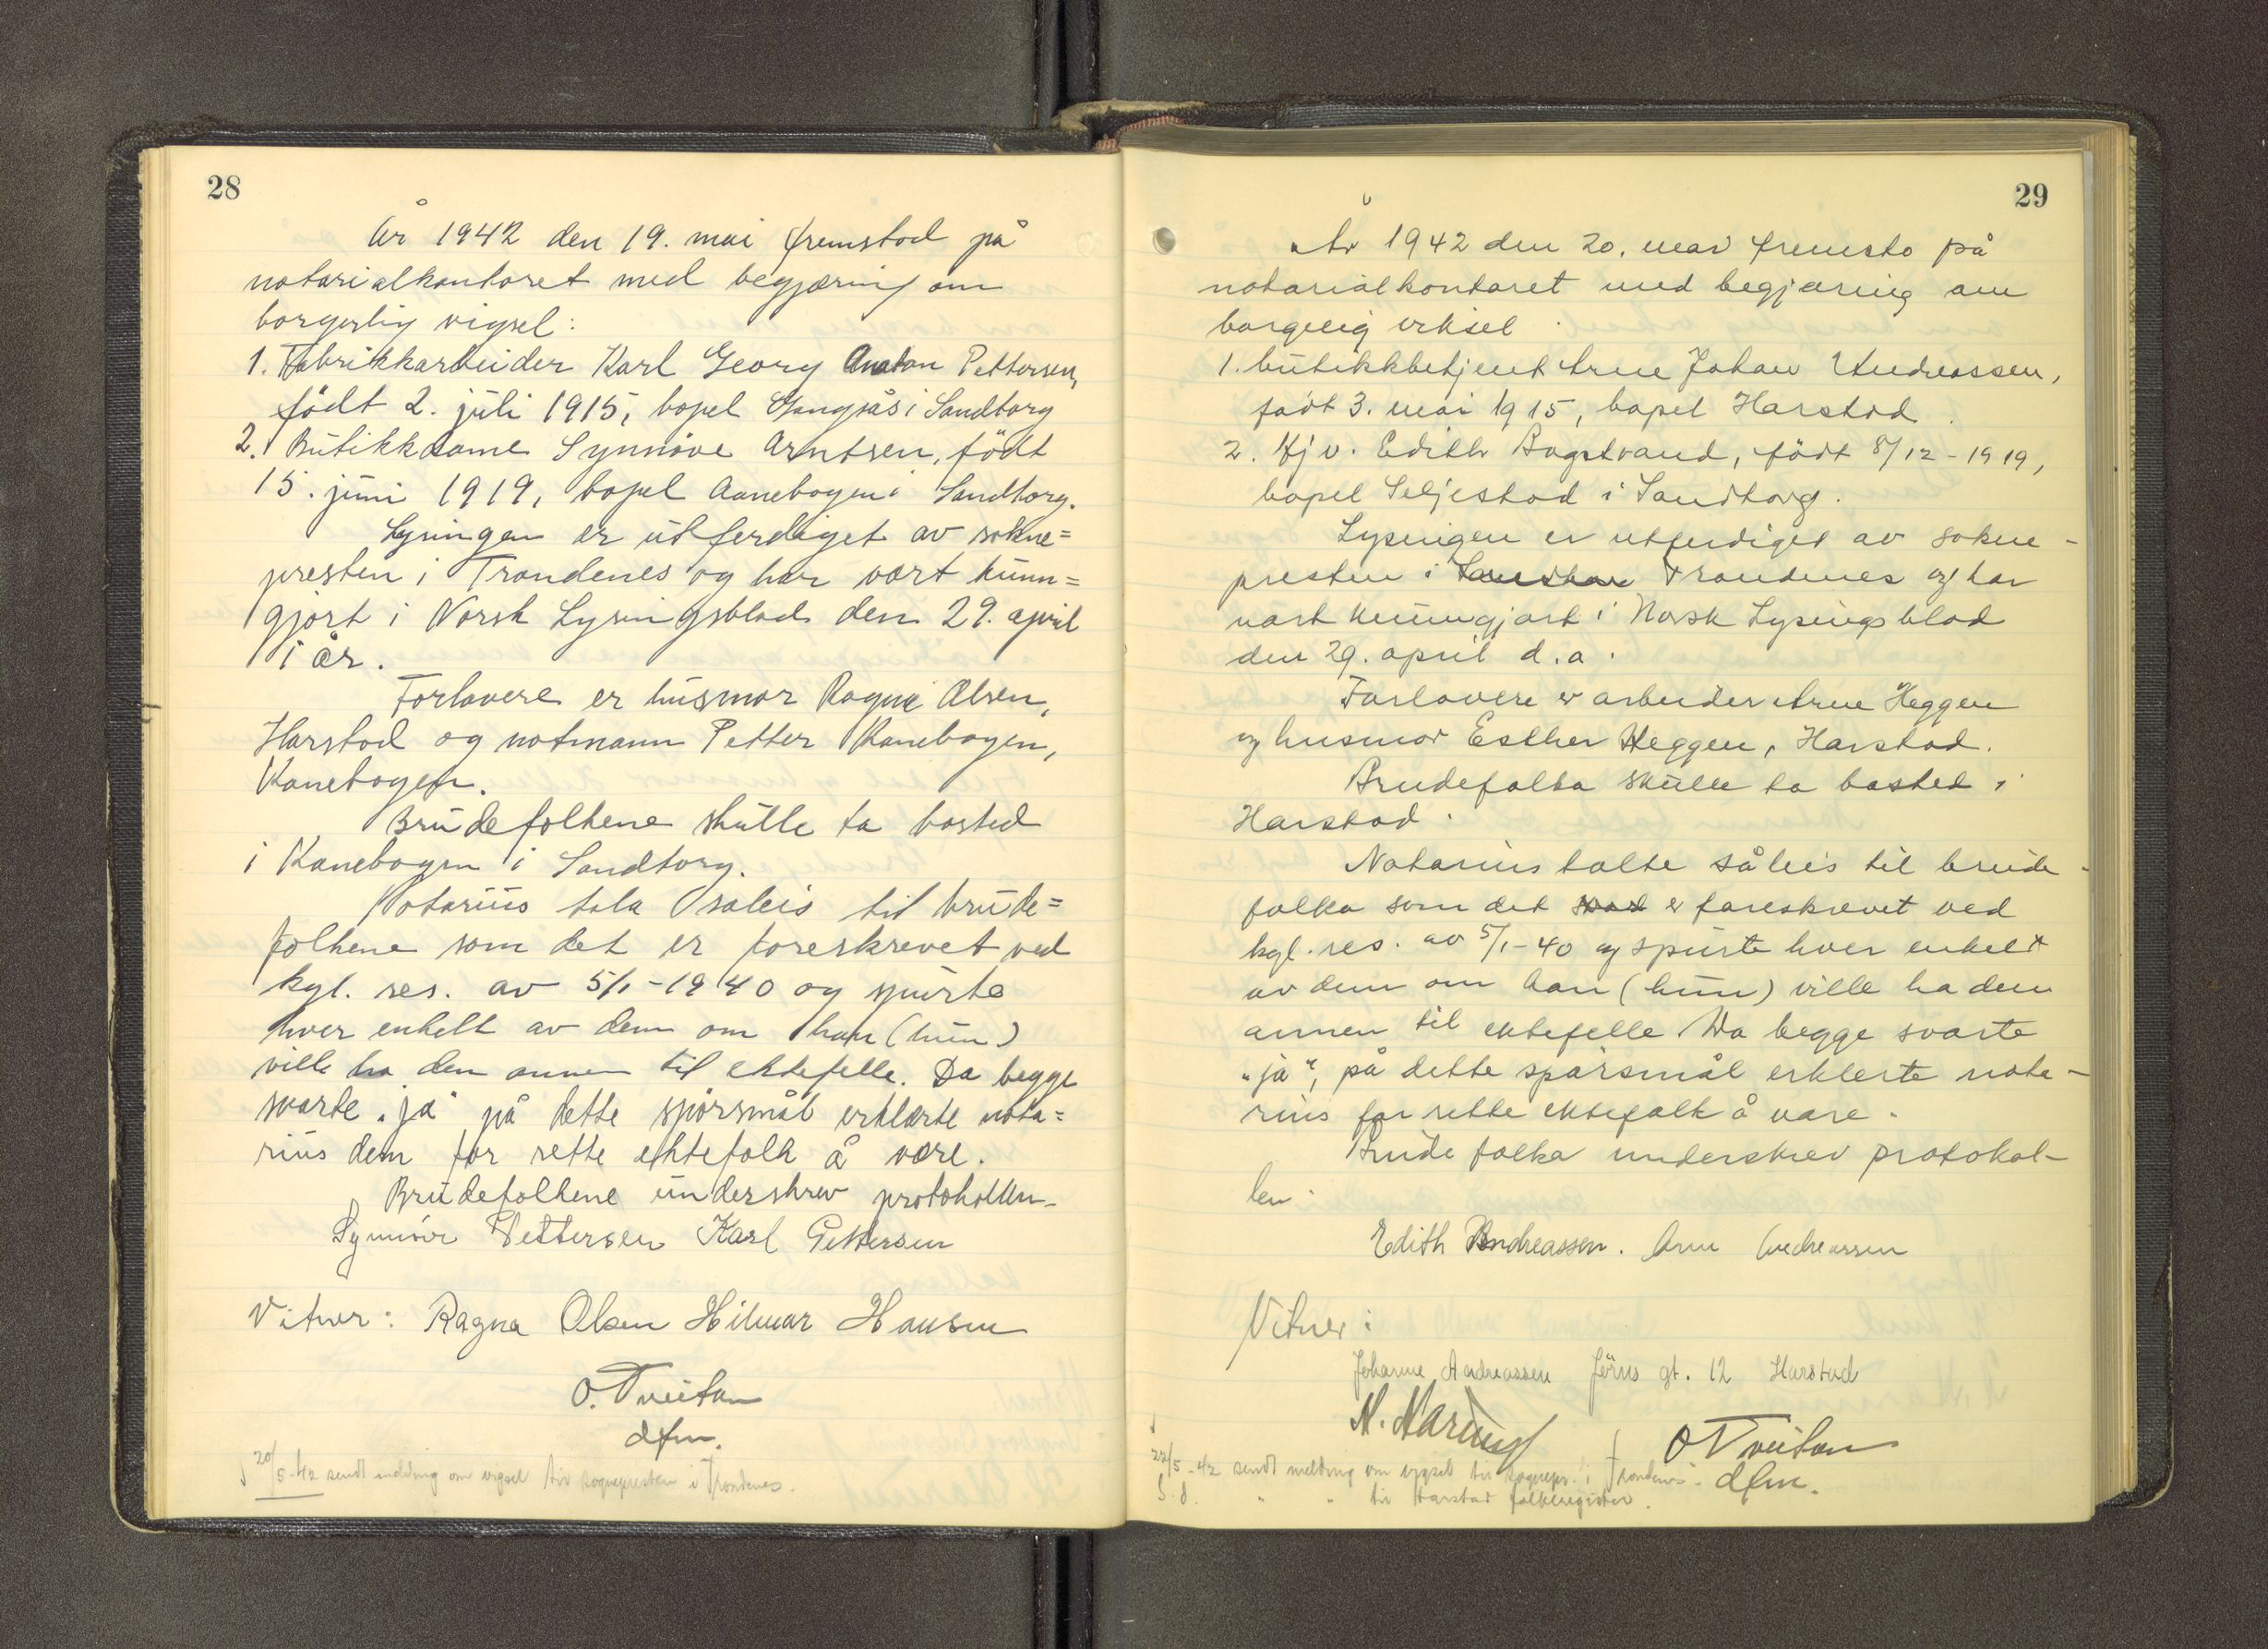 28
År 1942 den 19. mai fremstod på
notarialkontoret med begjæring om
borgerlig vigsel:
1. Fabrikkarbeider Karl Georg Anaton Pettersen,
født 2. juli 1915, bopel Gangsås i Sandtorg
2. Butikkdame Synnøve Arntsen, født
15. juni 1919, bopel Kanebogen i Sandtorg.
Lysingen er utferdiget av sokne=
presten i Trondenes og har vært kunn=
gjort i Norsk Lysingsblad den 29. april
i år.
Forlovere er husmor Ragna Olsen,
Harstad og notmann Petter Kanebogen,
Kanebogen.
Brudefolkene skulle ta bosted
i Kanebogen i Sandtorg.
Notarius tala såleis til brude=
folkene som det er foreskrevet ved
kgl. res. av 5/1-1940 og spurte
hver enkelt av dem om han (hun)
ville ha den annen til ektefelle. Da begge
svarte "ja" på dette spørsmål erklærte nota=
rius dem for rette ektefolk å være.
Brudefolkene underskrev protokollen.
Synnöve Pettersen Karl Pettersen
Vitner: Ragna Olsen Hilmar Hansen
O. Tveitan
dfm.
20/5-42 sendt melding om vigsel til sognepresten i Trondenes.
29
År 1942 den 20. mai fremsto på
notarialkontoret med begjæring om
borgelig viksel
1. butikkbetjent Arne Johan Andreassen,
født 3. mai 1915, bopel Harstad.
2. Hjv. Edith Bogstrand, født 8/12-1919,
bopel Seljestad i Sandtorg.
Lysingen er utferdiget av sokne-
presten i Trondenes og har
vært kunngjort i Norsk Lysingsblad
den 29. april d.a.
Forlovere er arbeider Arne Heggen
og husmor Esther Heggen, Harstad.
Brudefolka skulle ta bosted i
Harstad.
Notarius talte såleis til brude-
folka som det er foreskrevet ved
kgl. res. av 5/1-40 og spurte hver enkelt
av dem om han (hun) ville ha den
annen til ektefelle Da begge svarte
"ja", på dette spørsmål erklerte nota-
rius for rette ektefolk å være.
Brudefolka underskrev protokol-
len.
Edith Andreassen. Arne Andreassen
Vitner:
Johanne Andreassen Jörns gt. 12 Harstad
O Tveitan
dfm.
22/5-42 sendt melding om vigsel til sognepr. i Trondenes.
S.d. " " til Harstad folkeregister.